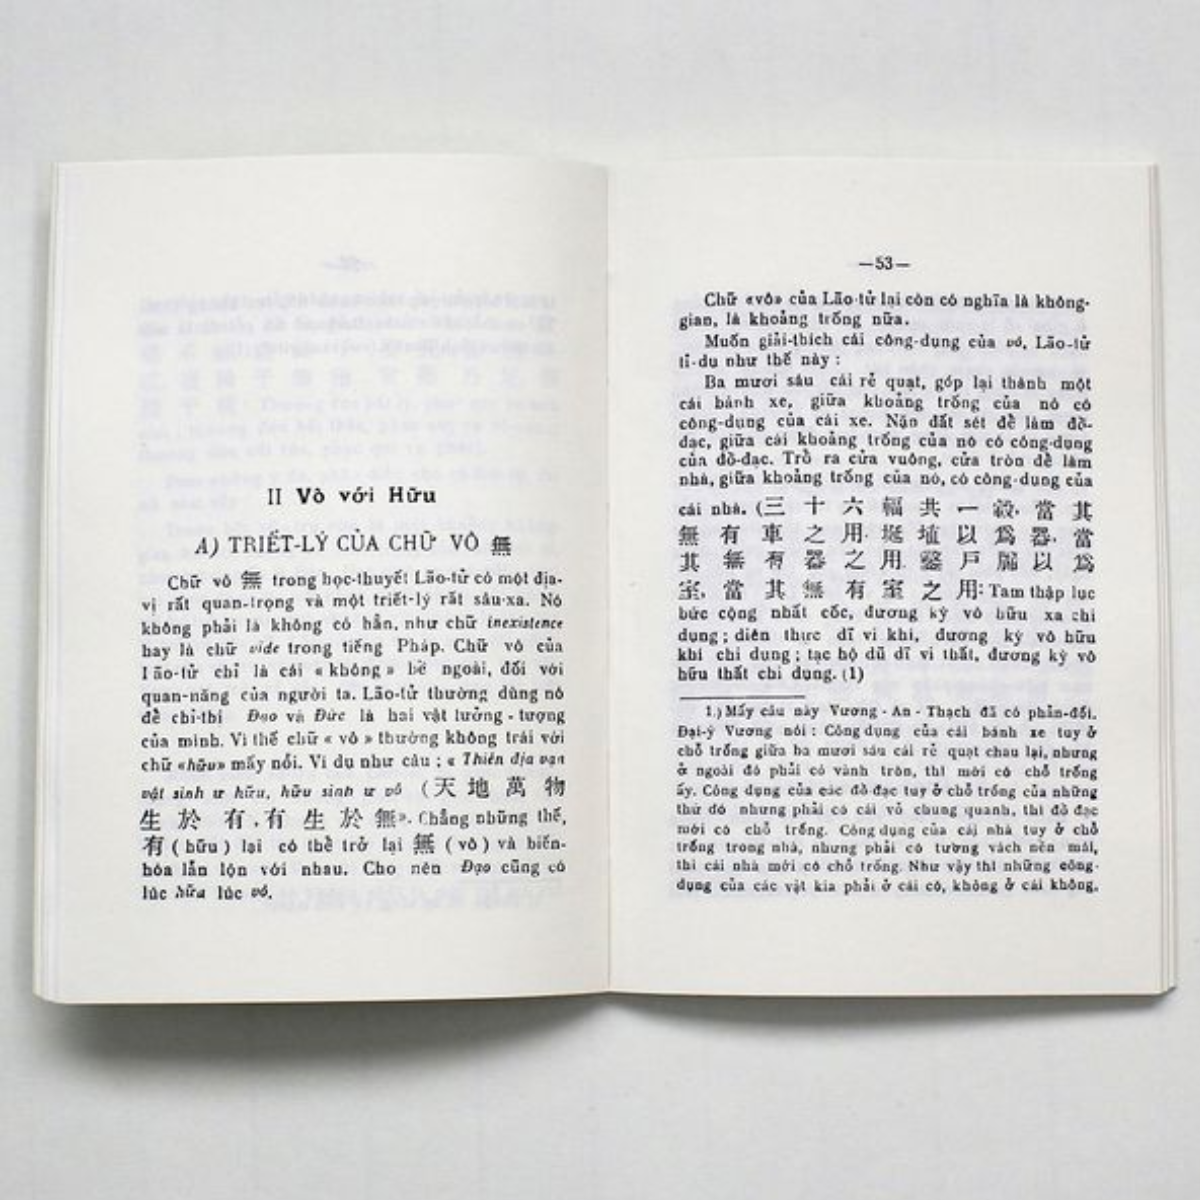 II Vô với Hữu
A) TRIẾT-LÝ CỦA CHỮ VÔ 無
Chữ vô 無 trong học-thuyết Lão-tử có một địa-
vị rất quan-trọng và một triết-lý rất sâu-xa. Nó
không phải là không có hẳn, như chữ inexistence
hay là chữ vide trong tiếng Pháp. Chữ vô của
Lão-tử chỉ là cái « không » bề ngoài, đối với
quan-năng của người ta. Lão-tử thường dùng nó
để chỉ-thị Đạo và Đức là hai vật tưởng-tượng
của mình. Vì thế chữ « vô » thường không trái với
chữ «hữu» mấy nỗi. Ví dụ như câu : « Thiên địa vạn
vật sinh ư hữu, hữu sinh ư vô (天 地 萬 物
生 於 有 , 有 生 於 無». Chẳng những thế,
有 ( hữu ) lại có thể trở lại 無 ( vô ) và biến-
hóa lẫn lộn với nhau. Cho nên Đạo cũng có
lúc hữu lúc vô.
—53—
Chữ «vô» của Lão-tử lại còn có nghĩa là không-
gian, là khoảng trống nữa.
Muốn giải-thích cái công-dụng của vô, Lão-tử
tỉ-dụ như thế này :
Ba mươi sáu cái rẻ quạt, góp lại thành một
cái bánh xe, giữa khoảng trống của nó có
công-dụng của cái xe. Nặn đất sét để làm đồ-
đạc, giữa cái khoảng trống của nó có công-dụng
của đồ-đạc. Trổ ra cửa vuông, cửa tròn để làm
nhà, giữa khoảng trống của nó, có công-dụng của
cái nhà. (三 十 六 輻 共 一 轂, 當 其
無 有 車 之 用. 埏 埴 以 爲 器, 當
其 無 有 器 之 用. 鑿 戸 牖 以 爲
室, 當 其 無 有 室 之 用: Tam thập lục
bức cộng nhất cốc, đương kỳ vô hữu xa chi
dụng ; diên thực dĩ vi khí, đương kỳ vô hữu
khí chi dụng ; tạc hộ dũ dĩ vi thất, đương kỳ vô
hữu thất chi dụng. (1)
1.) Mấy câu này Vương - An - Thạch đã có phản-đối.
Đại-ý Vương nói : Công dụng của cái bánh xe tuy ở
chỗ trống giữa ba mươi sáu cái rẻ quạt chau lại, nhưng
ở ngoài đó phải có vành tròn, thì mới có chỗ trống
ấy. Công dụng của các đồ đạc tuy ở chỗ trống của những
thứ đó nhưng phải có cái vỏ chung quanh, thì đồ đạc
mới có chỗ trống. Công dụng của cái nhà tuy ở chỗ
trống trong nhà, nhưng phải có tường vách nền mái,
thì cái nhà mới có chỗ trống. Như vậy thì những công-
dụng của các vật kia phải ở cái có, không ở cái không.